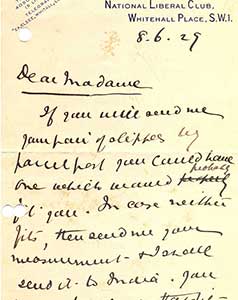 NATIONAL LIBERAL CLUB,
WHITEHALL PLACE, S.W.1.
8.6.29
Dear Madame
If you will send me
your pair of slippers by
parcel post you could have
probably
one which would
fit you. In case neither
fits, then send me your
measurement & I shall
send it to India. You